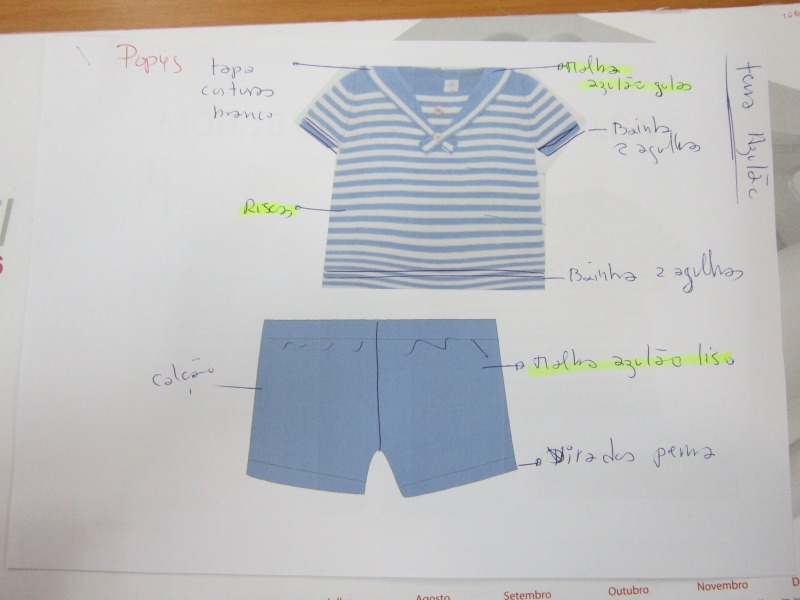 Popys
tapa
costuras
branco
Malha
azulão golas
Bainha
2 agulhas
tema Azulão
Riscas
Bainha 2 agulhas
Calcão
Malha azulão liso
Viradas perna
Agosto
Setembro
Outubro
Novembro